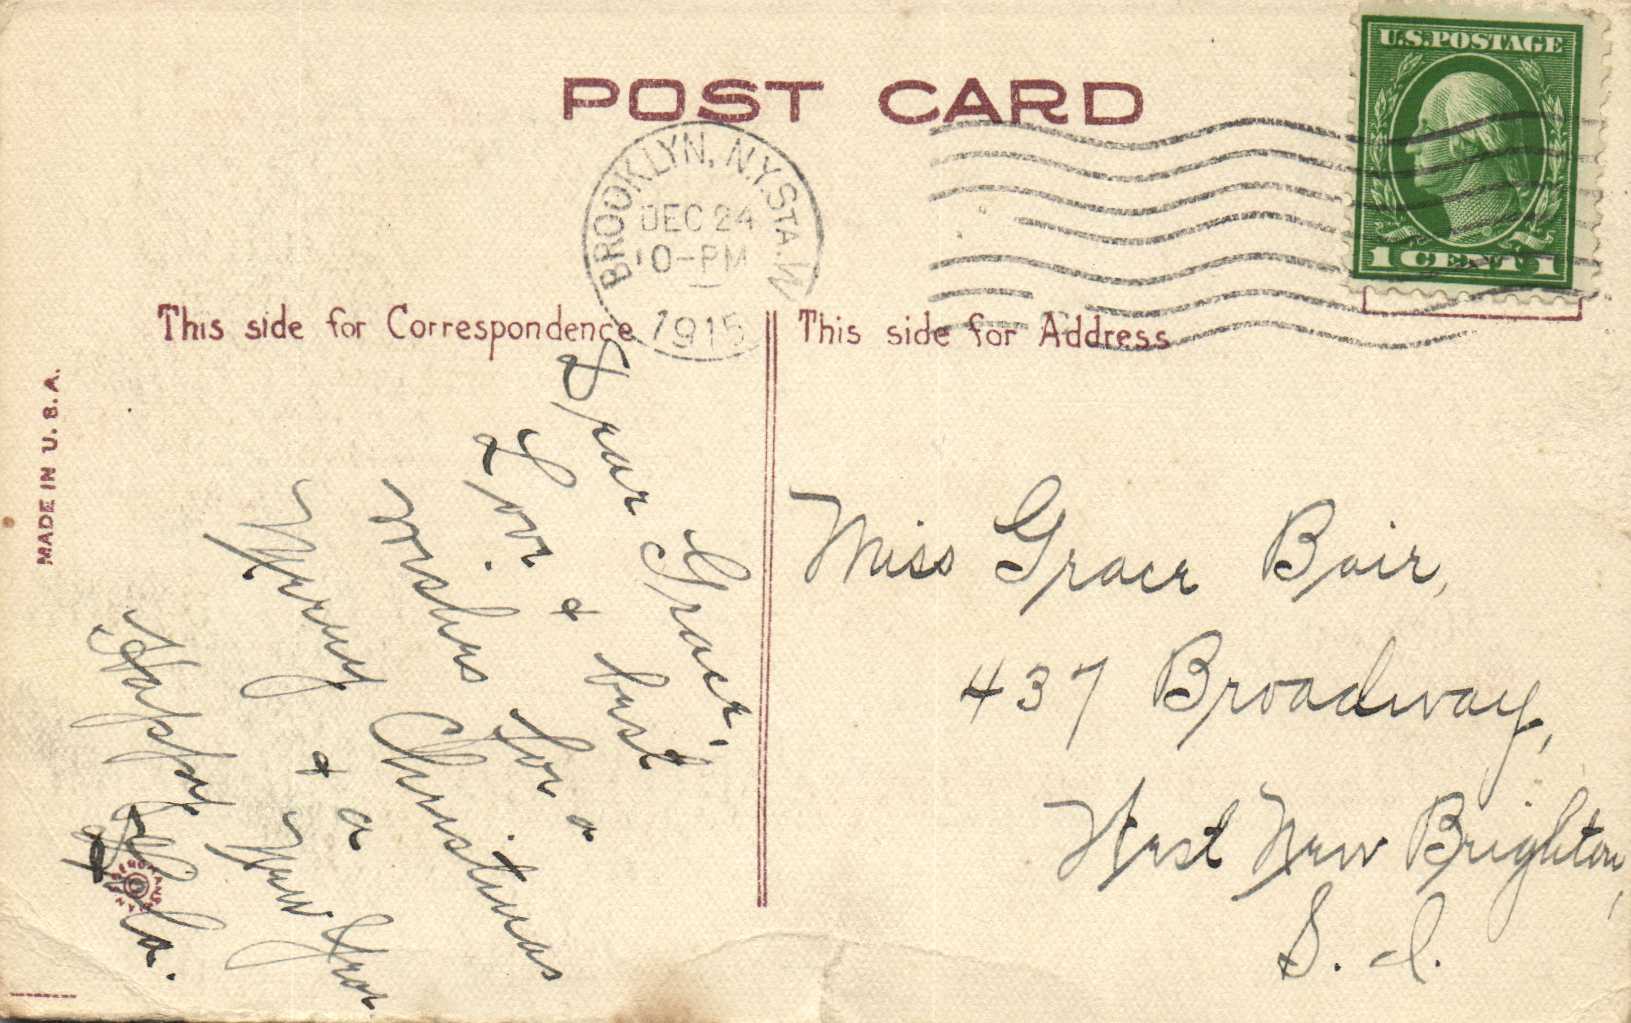 U.S.POSTAGE
1 CENT 1
POST CARD
BROOKLYN, N.Y. STA. W
DEC 24
10-PM
1915
This side for Correspondence
This side for Address
MADE IN U.S.A.
Dear Grace,
Love & best
wishes for a
Merry Christmas
& a
Happy New Year
Miss Grace Bair,
437 Broadway,
West New Brighton,
S. I.